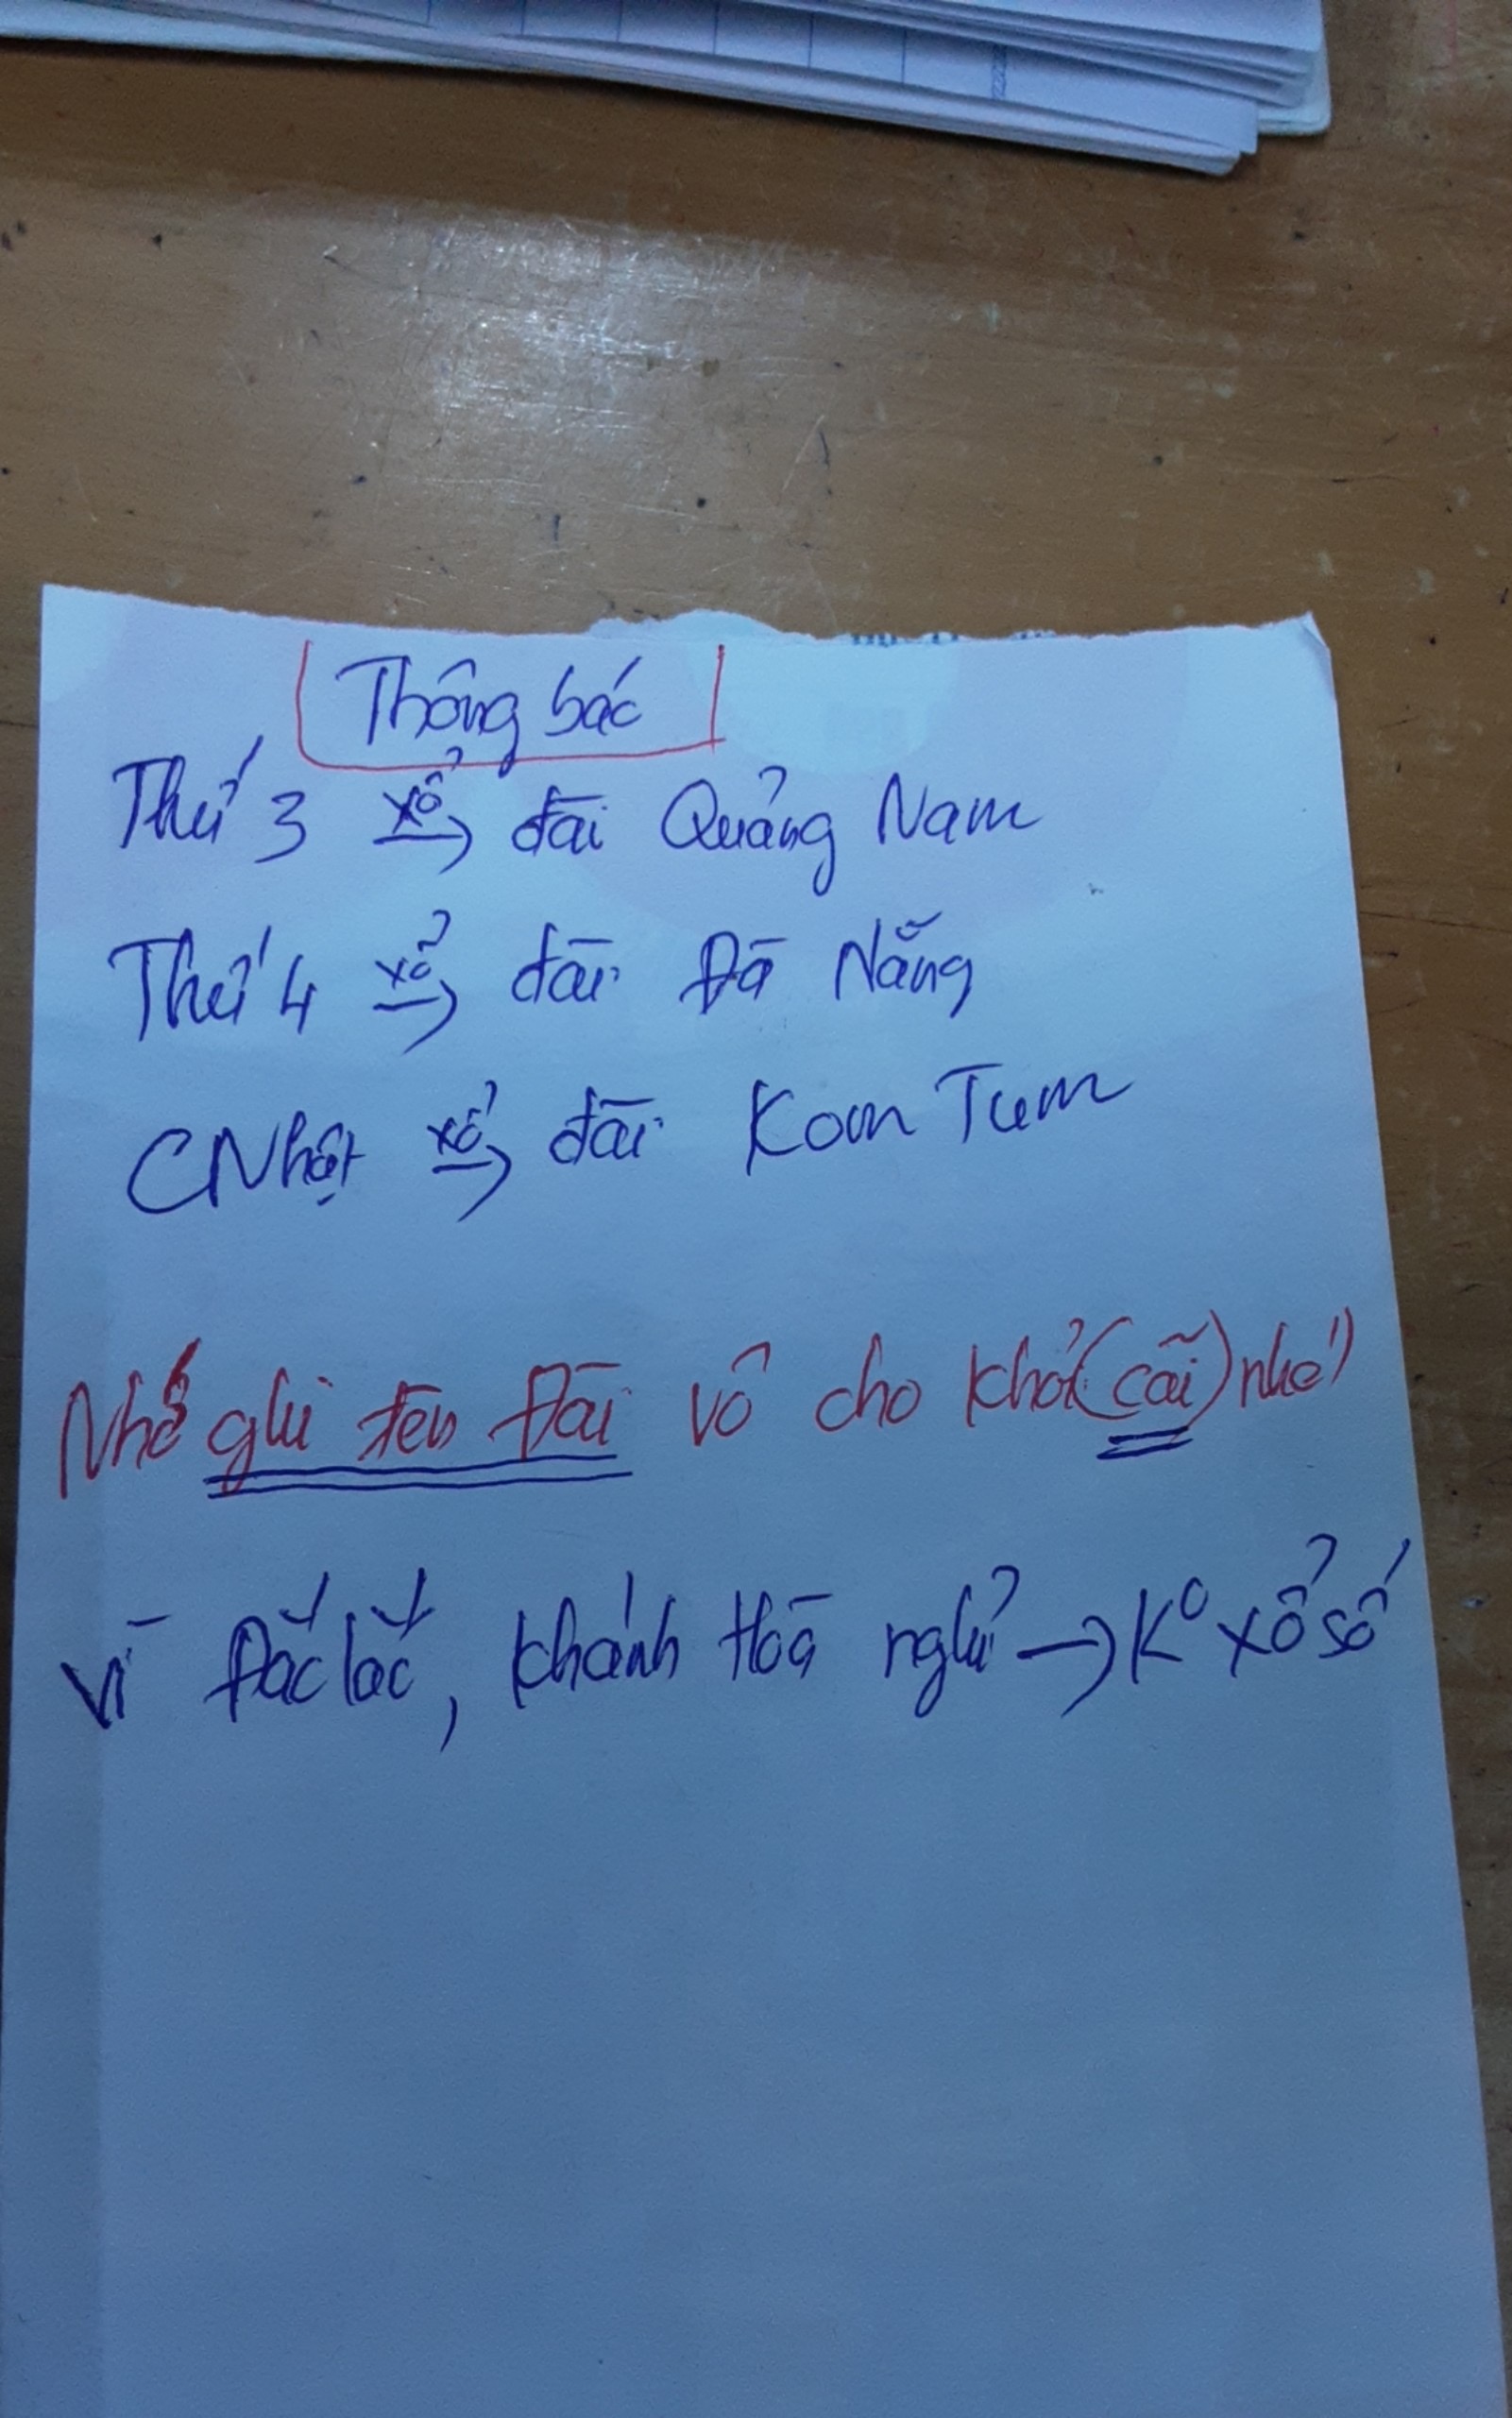 Thông báo
Thứ 3 xổ → đài Quảng Nam
Thứ 4 xổ → đài Đà Nẵng
CNhật xổ → đài Kom Tum
Nhớ ghi tên Đài vô cho khỏi (cãi) nhé!
Vì Đắc lắc, Khánh Hoà nghỉ → K° xổ số